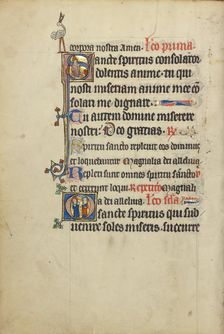 corpora nostra Amen. Leo prima
Sancte spiritus consolator
dolentis anime tu qui
nosti miseriam anime mee con
solari me dignare.
Tu autem domine miserere
nostri. Deo gratias. R.
Spiritu sancto repletur eos dominum
et loquebuntur Magnalia dei alleluia
Repleti sunt omnes spiritu sancto
et ceperunt loqui. Repetitio Magnalia
dei alleluia. Leo scda
Sancte spiritus qui sub
uenire soles miseris succurre